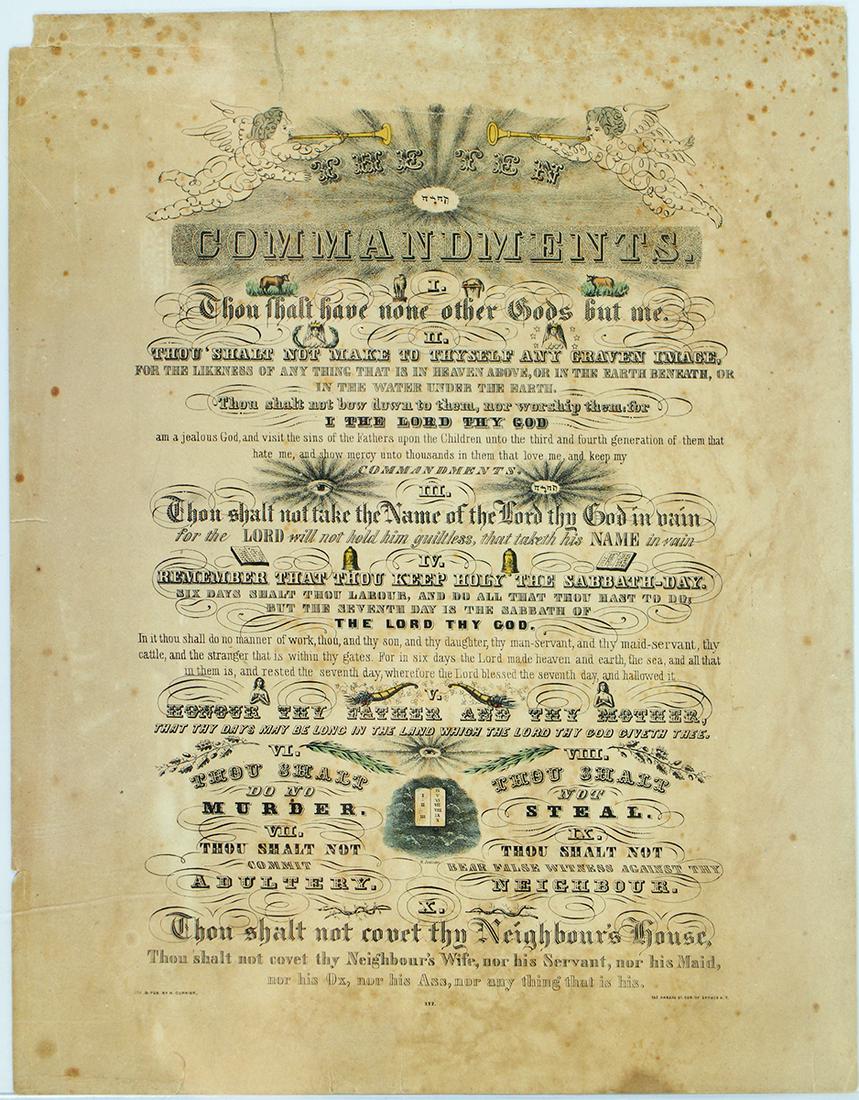 THE TEN
COMMANDMENTS.
I.
Thou shalt have none other Gods but me.
II.
THOU SHALT NOT MAKE TO THYSELF ANY GRAVEN IMAGE,
FOR THE LIKENESS OF ANY THING THAT IS IN HEAVEN ABOVE, OR IN THE EARTH BENEATH, OR
IN THE WATER UNDER THE EARTH.
Thou shalt not bow down to them, nor worship them: for
I THE LORD THY GOD
am a jealous God, and visit the sins of the Fathers upon the Children unto the third and fourth generation of them that
hate me, and show mercy unto thousands in them that love me, and keep my
COMMANDMENTS.
III.
Thou shalt not take the Name of the Lord thy God in vain
for the LORD will not hold him guiltless, that taketh his NAME in vain
IV.
REMEMBER THAT THOU KEEP HOLY THE SABBATH-DAY.
SIX DAYS SHALT THOU LABOUR, AND DO ALL THAT THOU HAST TO DO;
BUT THE SEVENTH DAY IS THE SABBATH OF
THE LORD THY GOD.
In it thou shall do no manner of work, thou, and thy son, and thy daughter, thy man-servant, and thy maid-servant, thy
cattle, and the stranger that is within thy gates. For in six days the Lord made heaven and earth, the sea, and all that
in them is, and rested the seventh day, wherefore the Lord blessed the seventh day, and hallowed it
V.
HONOUR THY FATHER AND THY MOTHER,
THAT THY DAYS MAY BE LONG IN THE LAND WHICH THE LORD THY GOD GIVETH THEE.
VI.
THOU SHALT
DO NO
MURDER.
VII.
THOU SHALT NOT
COMMIT
ADULTERY.
VIII.
THOU SHALT
NOT
STEAL.
IX.
THOU SHALT NOT
BEAR FALSE WITNESS AGAINST THY
NEIGHBOUR.
X.
Thou shalt not covet thy Neighbour's House,
Thou shalt not covet thy Neighbour's Wife, nor his Servant, nor his Maid,
nor his Ox, nor his Ass, nor any thing that is his.
LITH. & PUB. BY N. CURRIER,
152 NASSAU ST. COR. OF SPRUCE N.Y.